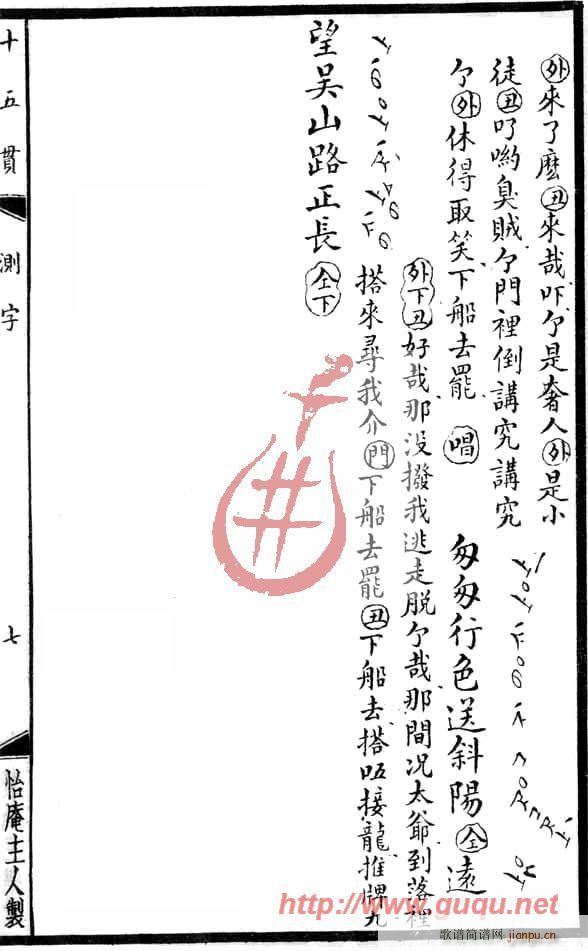 外來了麽丑來哉吥㐅是奢人外是小
徒丑叮喲臭賊㐅門裡倒講究講究
㐅外休得取笑下船去罷 唱 匆匆行色送斜陽仝遠
外下丑好哉那没撥我逃走脱㐅哉那間况太爺到落裡
搭來尋我介門下船去罷丑下船去搭㕸接龍推牌九
望吴山路正長仝下
十五貫
測字
七
怡庵主人製
http://www.guqu.net
歌谱简谱网
jianpu.cn